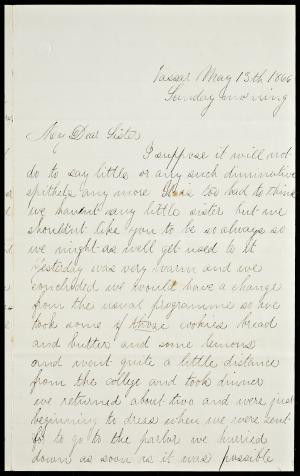 Vassar May 13th 1866
Sunday morning
My Dear Sister
I suppose it will not
do to say little or any such diminutive
epithets any more It is too bad to think
we havent any little sister but we
shouldnt like you to be so always so
we might as well get used to it
Yesterday was very warm and we
concluded we would have a change
from the usual programme so we
took some of those cookies bread
and butter and some lemons
and went quite a little distance
from the college and took dinner
we returned about two and were just
beginning to dress when we were sent
for to go to the parlor we hurried
down as soon as it was possible